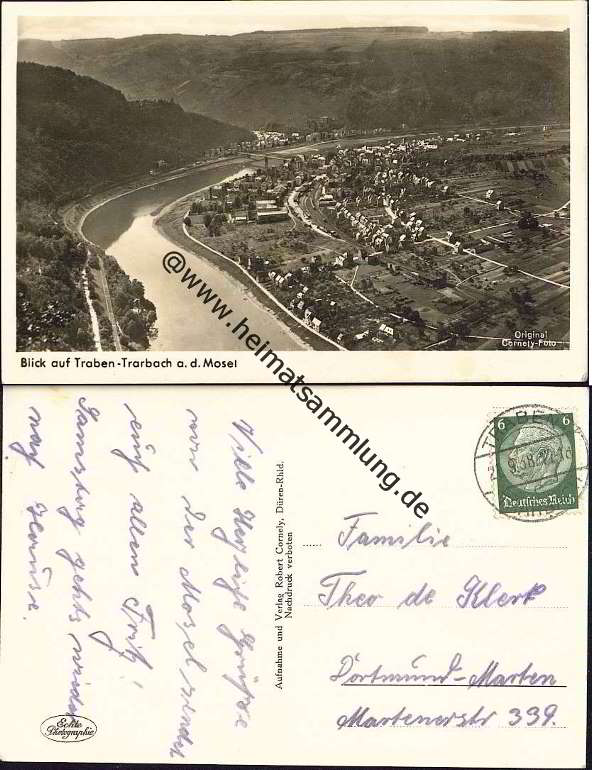 Original
Cornely-Foto
Blick auf Traben-Trarbach a. d. Mosel
@www.heimatsammlung.de
Viele Herzliche Grüsse
von der Mosel sendet
euch allen Fritz!
Samstag gehts wieder
nach Hause.
Echte
Photographie
Aufnahme und Verlag Robert Cornely, Düren-Rhld.
Nachdruck verboten
6 6
Deutsches Reich
Familie
Theo de Klerk
Dortmund-Marten
Martenerstr 339.